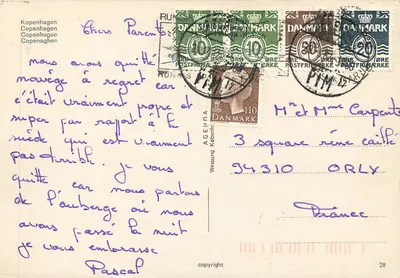 Kopenhagen
Copenhagen
Copenhague
Copenaghen
Chers Parents
nous avons quitté
norvège à regret car
c'était vraiment propre et
super par rapport à la
suède qui est vraiment
pas terrible. je vous
quitte car nous partons
de l'auberge où nous
avons passé la nuit
je vous embrasse
Pascal
DANMARK
10
10
DANMARK
DANMARK
20
POSTFRIMÆRKE
110
DANMARK
AGENDA
Mr et Mme Carpentier
3 square réné caillé
94310 ORLY
France
copyright
28